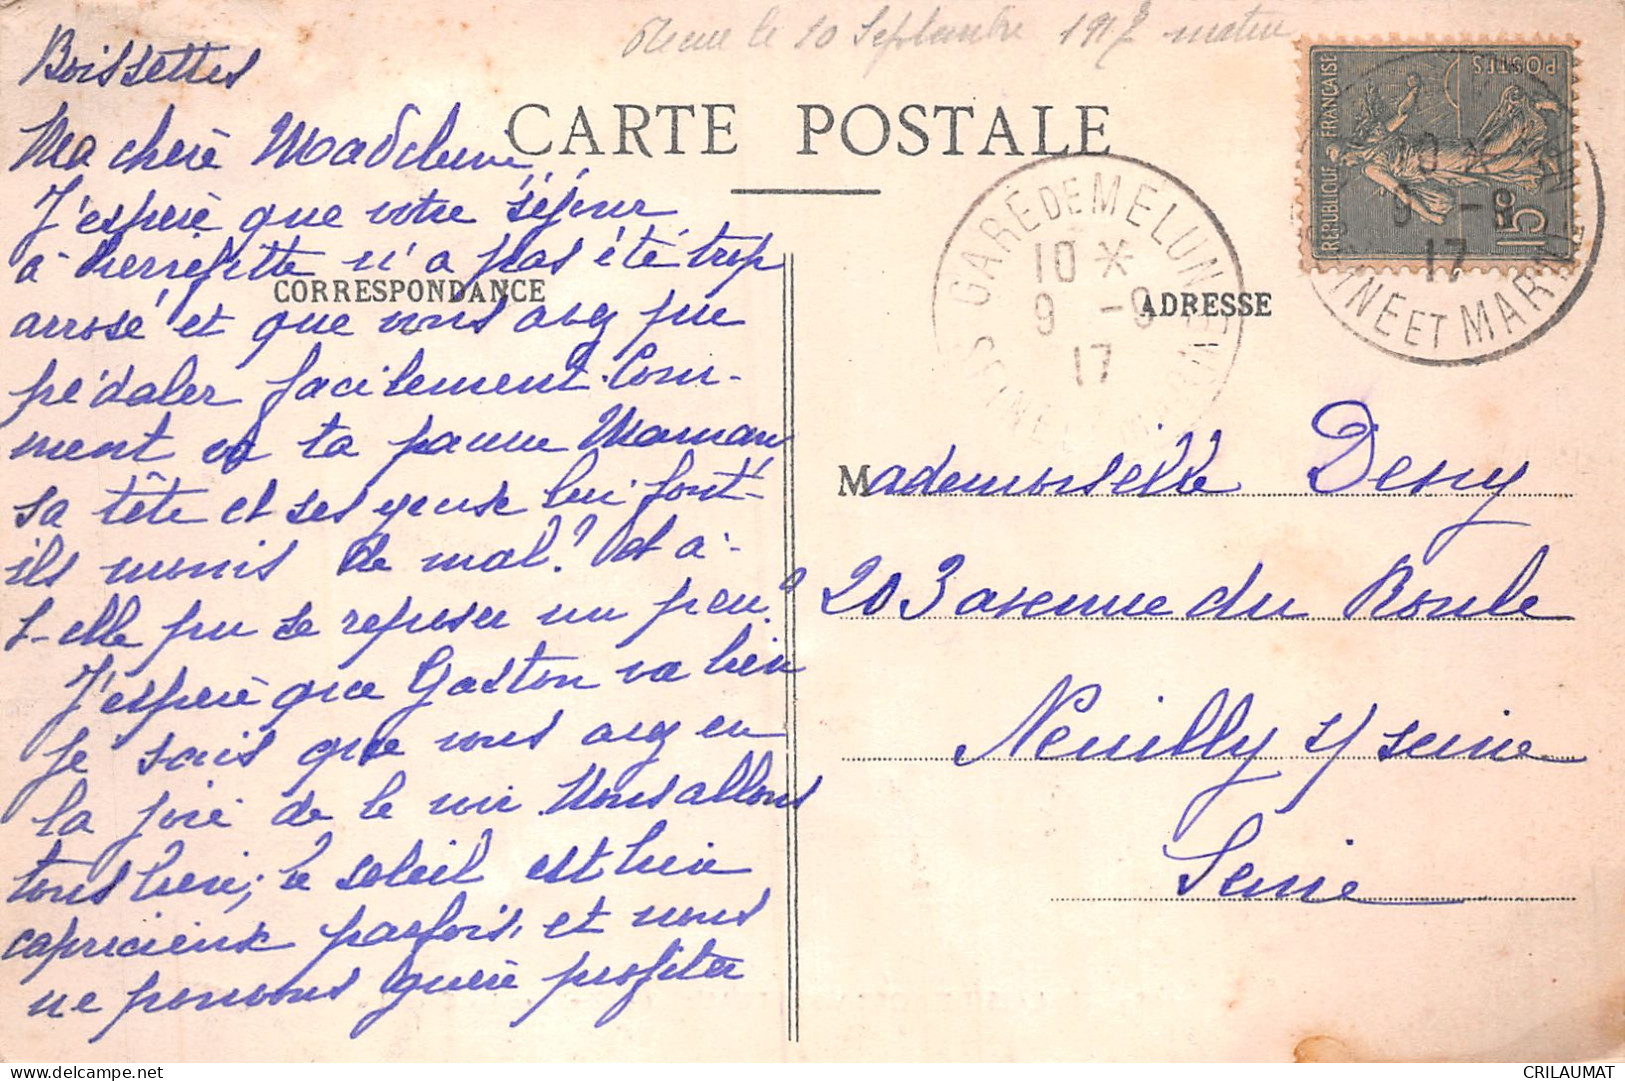 Reçue le 10 Septembre 1917 matin
Boissettes
CARTE POSTALE
Ma chère Madeleine
J'espère que votre séjour
à Pierrefitte n'a pas été trop
CORRESPONDANCE
arrosé et que vous avez pu
pédaler facilement. Com-
ment va ta pauvre Maman
sa tête et ses yeux lui font-
ils moins de mal? et a-
t-elle pu se reposer un peu?
J'espère que Gaston va bien
je sais que vous avez eu
la joie de le voir Nous allons
tous bien; le soleil est bien
capricieux parfois, et nous
ne pouvons guère profiter
GARE DE MELUN
10 *
9 -9
17
SEINE ET MARNE
REPUBLIQUE FRANÇAISE
POSTES
15c
10 *
9 -9
17
SEINE ET MARNE
ADRESSE
Mademoiselle Deny
203 avenue du Roule
Neuilly s/ seine
Seine
CRILAUMAT